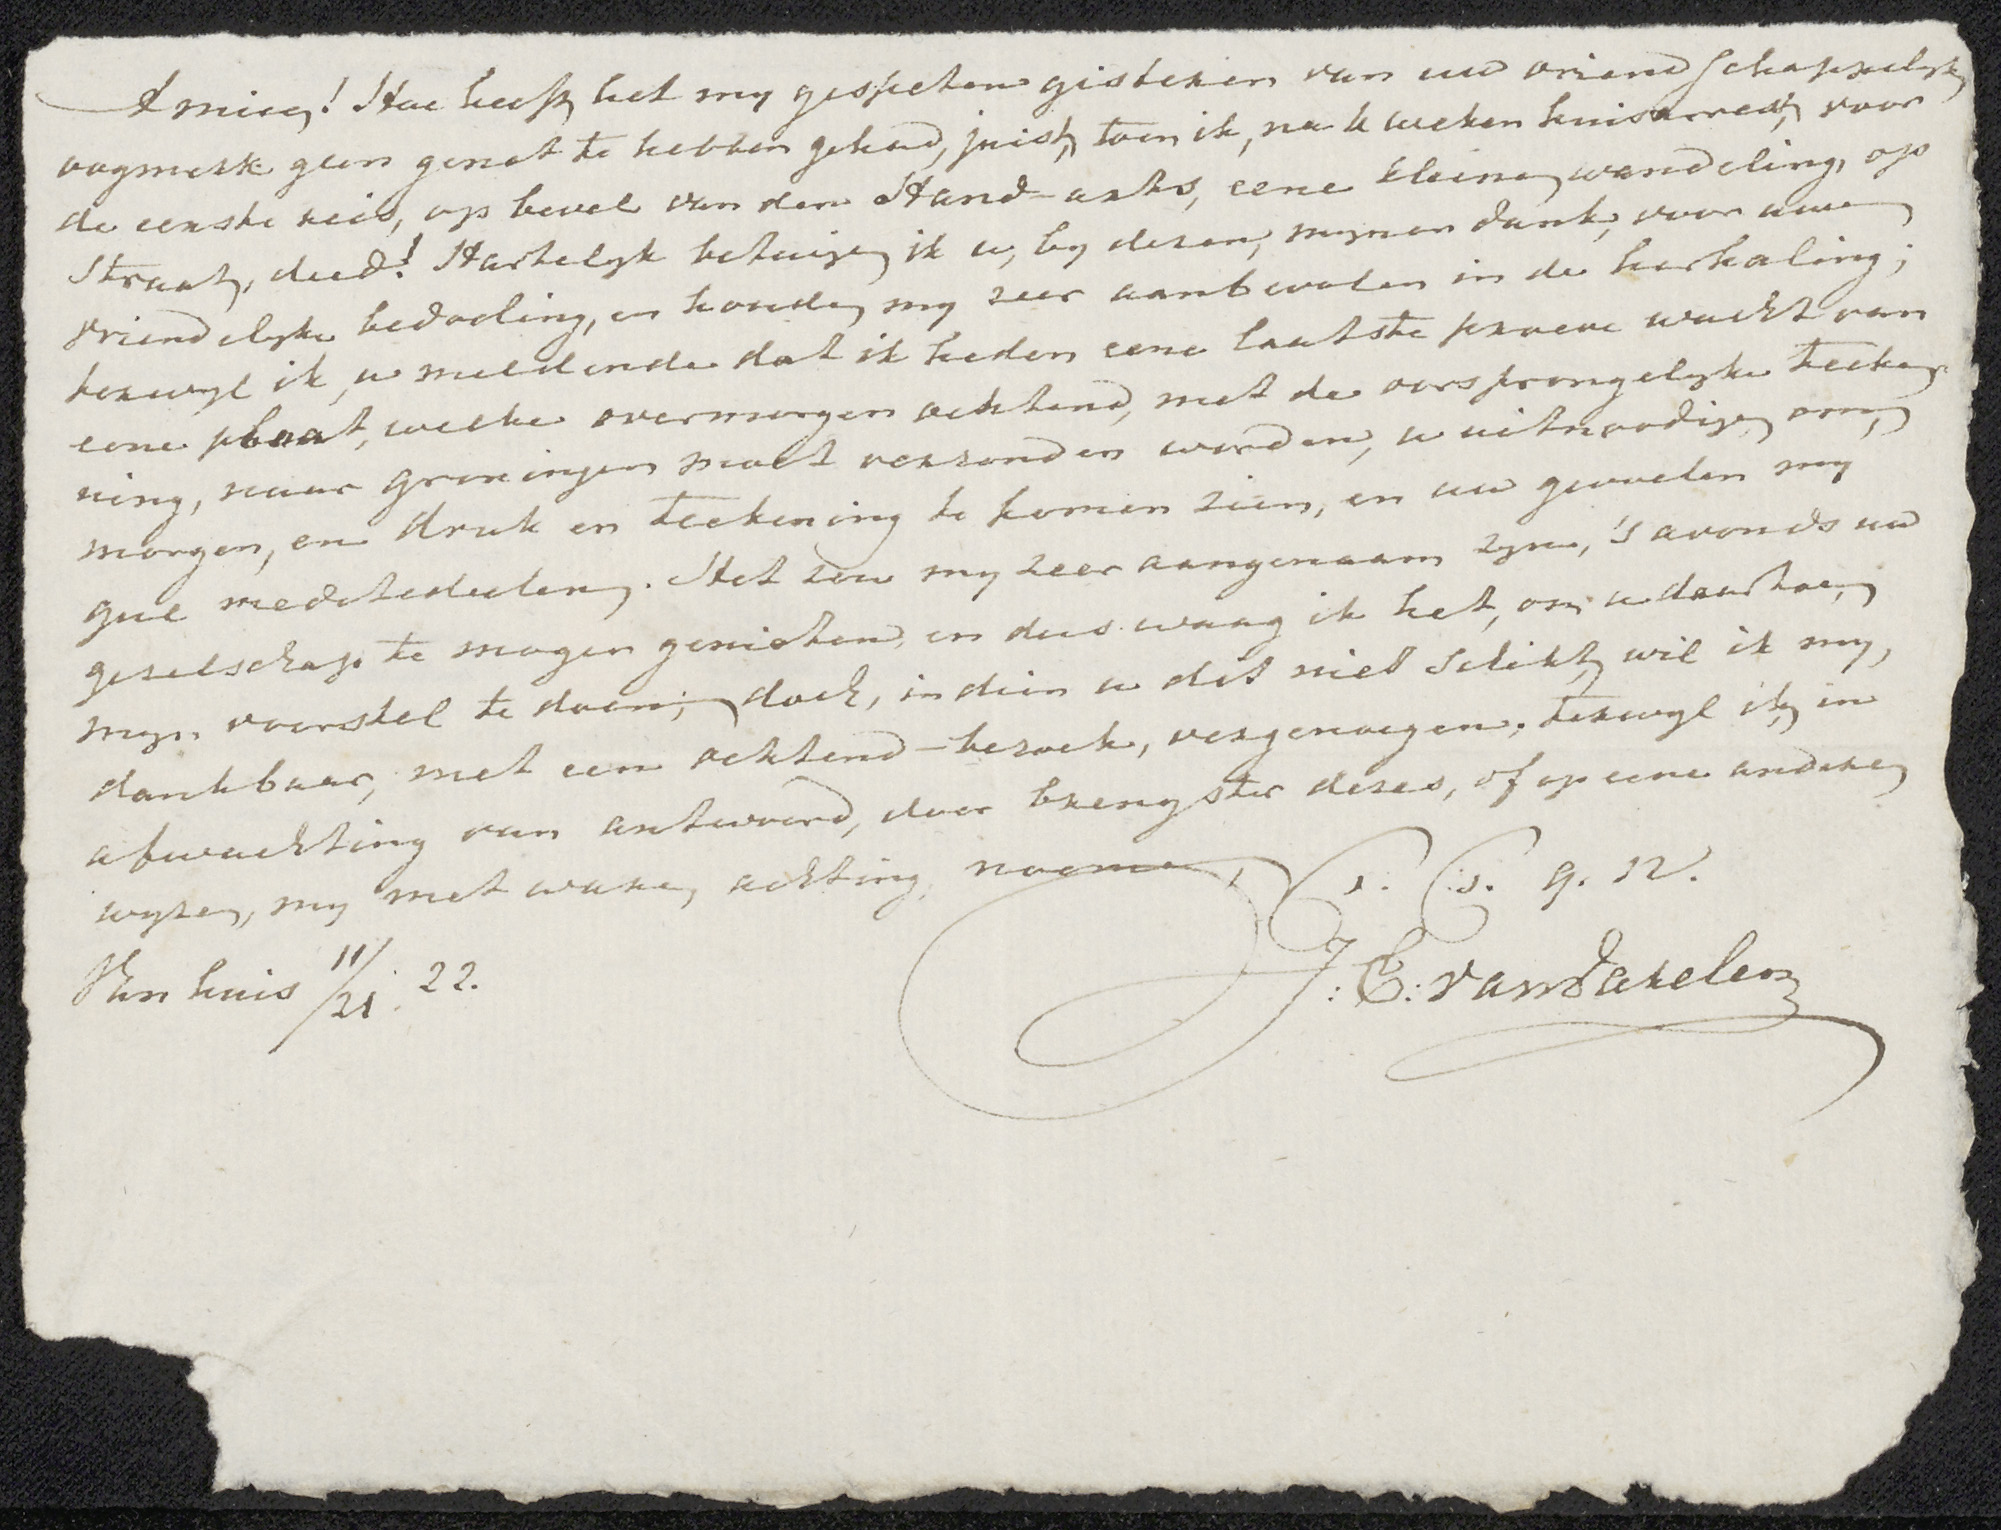 Amice! Hoe heeft het my gespeten gisteren van uw vriendschappelyk
oogmerk geen genot te hebben gehad, juist, toen ik, na 4 weken huisarrest, voor
de eerste reis, op bevel van den Hand-arts, eene kleine wandeling, op
Straat, deed! Hartelyk betuige ik u, by dezen, mynen dank, voor uwe
vriendelyke bedoeling, en houde my zeer aanbevolen in de herhaling;
terwyl ik, u meldende dat ik heden eene laatste proeve wacht van
eene plaat, welke overmorgen ochtend, met de oorsprongelyke teeke-
ning, naar Groningen moet verzonden worden, u uitnoodige, om,
morgen, en druk en teekening te komen zien, en uw gevoelen my
gul medetedeelen. Het zou my zeer aangenaam zyn, 's avonds uw
gezelschap te mogen genieten, en dus waag ik het, om u daartoe,
myn voorstel te doen; doch, indien u dit niet schikt, wil ik my,
dankbaar, met een ochtend-bezoek, vergenoegen, terwyl ik, in
afwachting van antwoord, door brengster dezes, of op eene andere
wyze, my met ware achting, noeme,
Van huis 11/21. 22.
J: C: van Hakelen